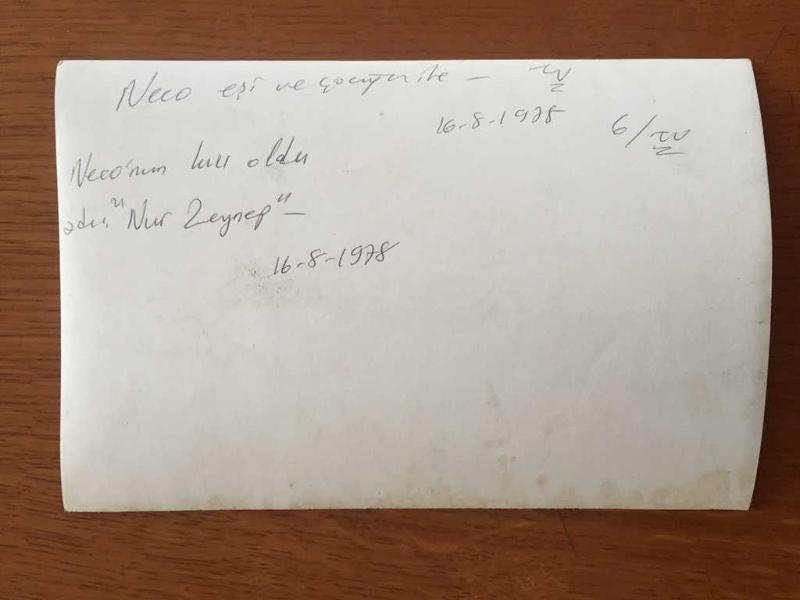 Neco eşi ve çocuğu ile –
16-8-1978
6/
Neco'nun kızı oldu
adı, "Nur Zeynep" –
16-8-1978